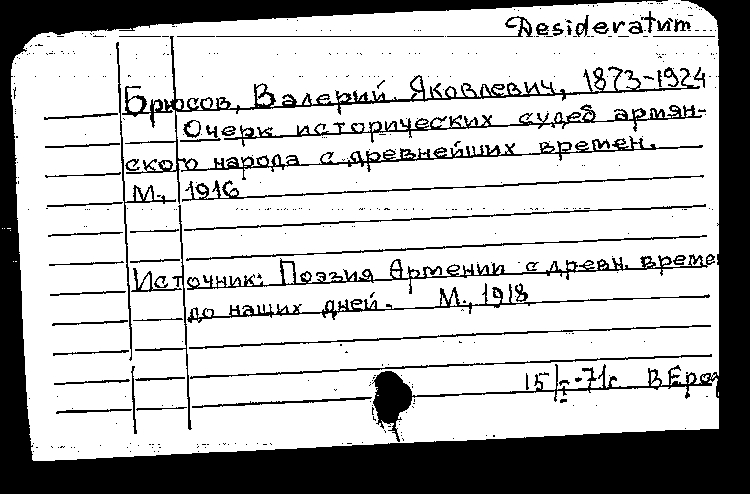 Desideratum
Брюсов, Валерий Яковлевич, 1873-1924
Очерк исторических судеб армян-
ского народа с древнейших времен.
М., 1916
Источник: Поэзия Армении с древн. време
до наших дней. М., 1918
15/I-71г.